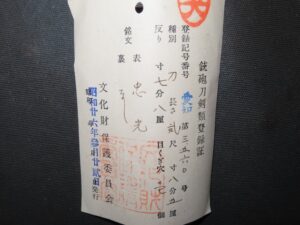 銃砲刀剣類登録証
登録記号番号 愛知 第三五六〇号
種別 刀 長さ 貳尺 寸八分五厘
反り 寸七分八厘 目くぎ穴 壱個
銘文 表 忠光
裏 なし
文化財保護委員会
昭和廿六年 月廿貳日発行